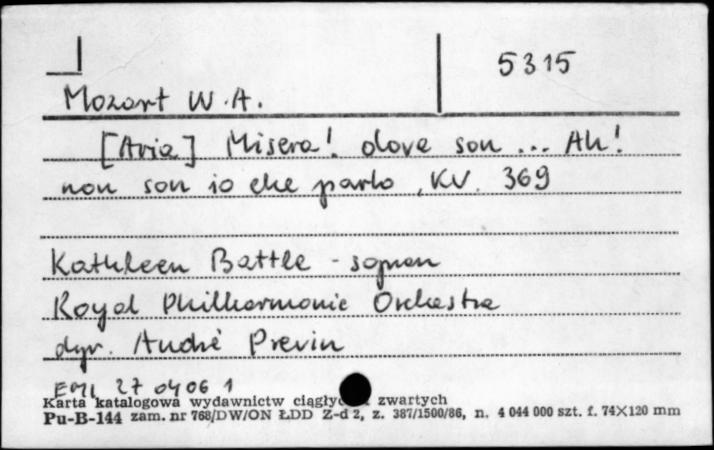 5315
Mozart W.A.
[Aria] Misera! dove son ... Ah!
non son io che parlo, KV. 369
Kathleen Battle - sopran
Royal Philharmonic Orchestra
dyr. André Previn
EMI 27 0406 1
Karta katalogowa wydawnictw ciągłyc zwartych
Pu-B-144 zam. nr 768/DW/ON ŁDD Z-d 2, z. 387/1500/86, n. 4 044 000 szt. f. 74×120 mm